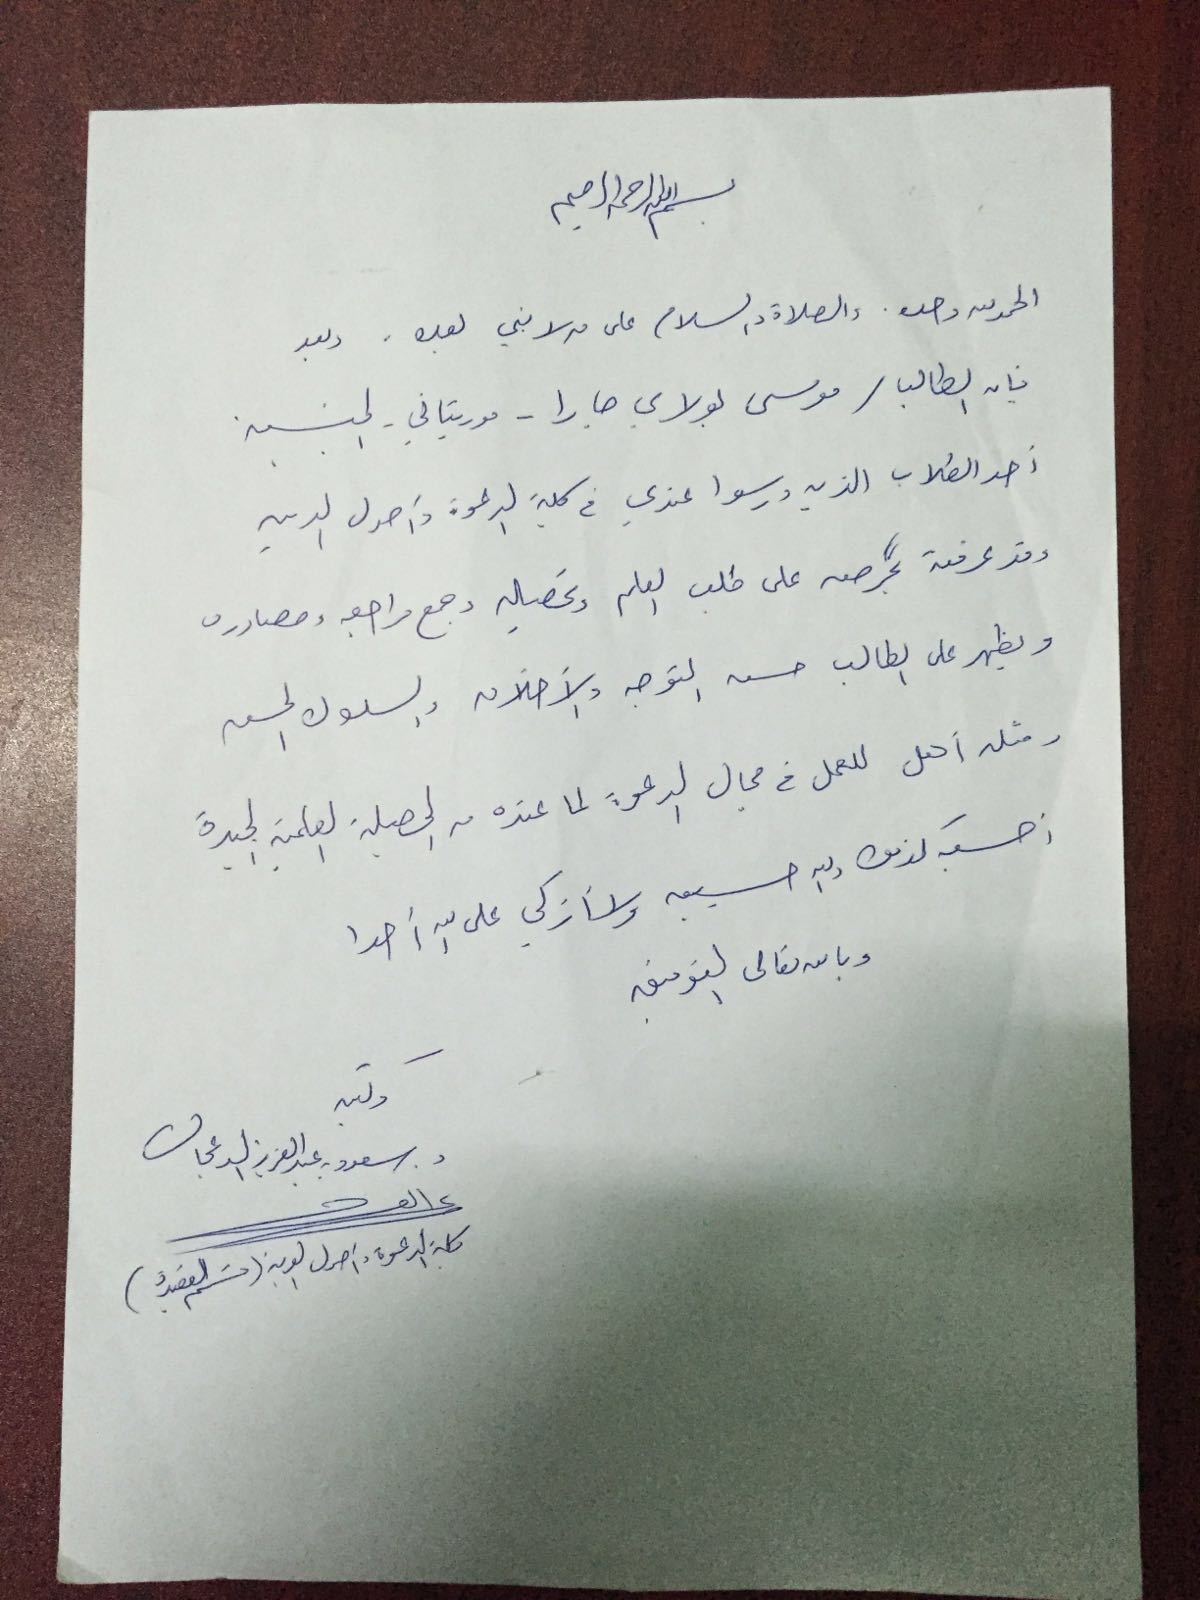 بسم الله الرحمن الرحيم
الحمد لله وحده . والصلاة والسلام على من لا نبي بعده . وبعد
فإن الطالب / موسى بولاي جارا - موريتاني - الجنسية
أحد الطلاب الذين درسوا عندي في كلية الدعوة وأصول الدين
وقد عرفته بحرصه على طلب العلم وتحصيله وجمع مراجعه ومصادره
ويظهر على الطالب حسن التوجه والأخلاق والسلوك الحسن
ومثله أهل للعمل في مجال الدعوة لما عنده من الحصيلة العلمية الجيدة
أحسبه كذلك والله حسيبه ولا أزكي على الله أحدا
وبالله تعالى التوفيق
وكتبه
د. سعود بن عبد العزيز الدعجان
كلية الدعوة وأصول الدين (قسم العقيدة)